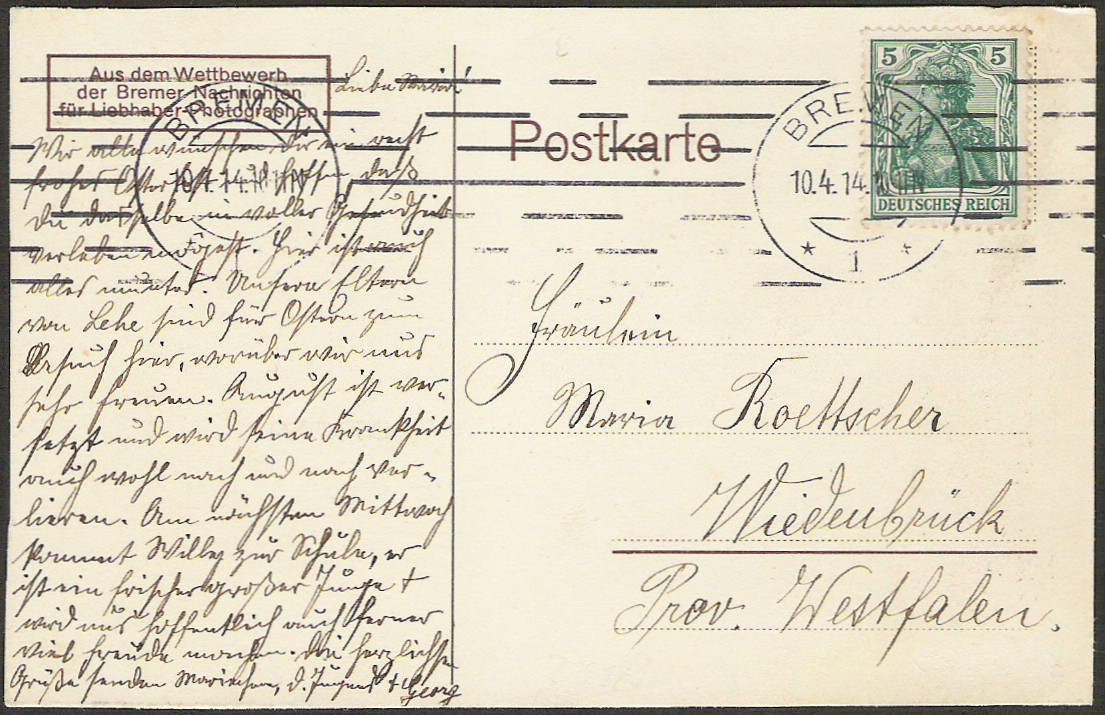 Aus dem Wettbewerb
der Bremer Nachrichten
für Liebhaber-Photographen
Liebe Maria!
Wir alle wünschen Dir ein recht
frohes Osterfest hoffen, daß
Du dasselbe in voller Gesundheit
verleben mögest. Hier ist auch
alles munter. Unsere Eltern
von Lehe sind für Ostern zum
Besuch hier, worüber wir uns
sehr freuen. August ist ver-
setzt und wird seine Krankheit
auch wohl nach und nach ver-
lieren. Am nächsten Mittwoch
kommt Willy zur Schule, er
ist ein frischer großer Junge +
wird uns hoffentlich auch ferner
viel Freude machen. Die herzlichsten
Grüße senden Mariechen, d. Jungens + Georg
Postkarte
BREMEN
10.4.14.
BREMEN
10.4.14.
* 1 *
5 5
DEUTSCHES REICH
Fräulein
Maria Roettscher
Wiedenbrück
Prov. Westfalen.